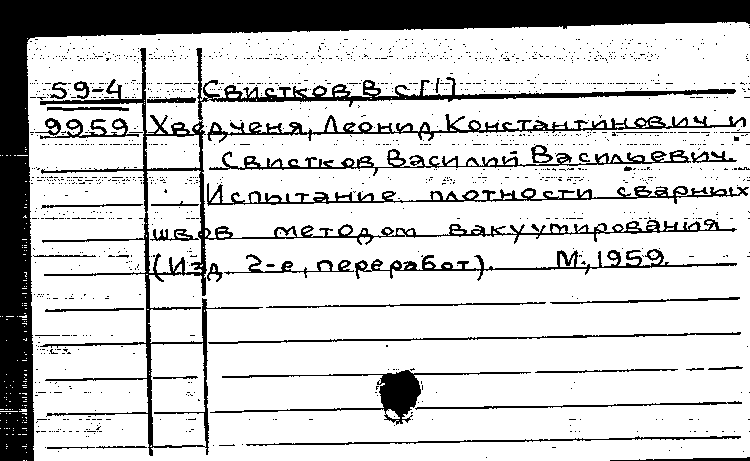 59-4 Свистков, В с [1]
9959 Хведченя, Леонид Константинович и
Свистков, Василий Васильевич.
Испытание плотности сварных
швов методом вакуумирования
(Изд. 2-е, переработ). М., 1959.